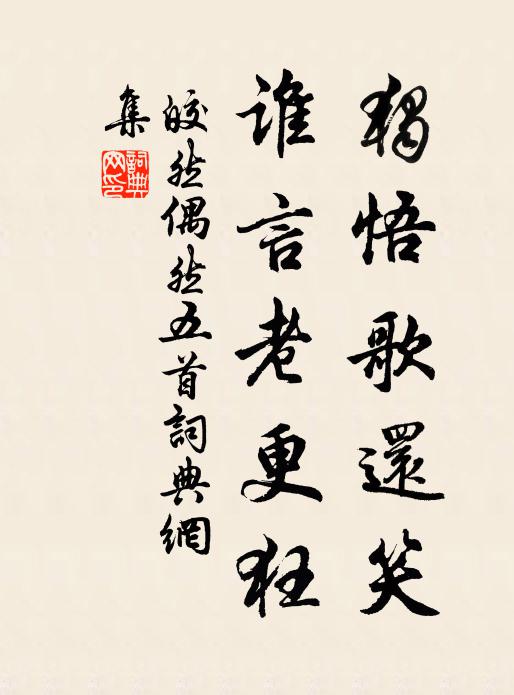 獨悟歌還笑
誰言老更狂
皎然偶然五首詞典網
集
詞典
網印